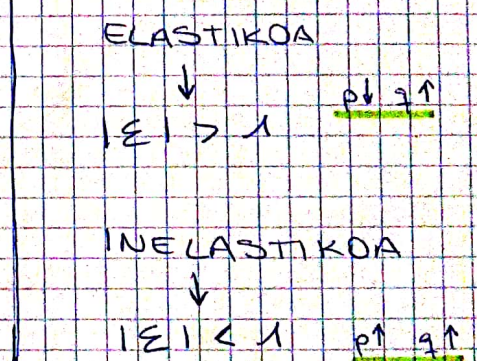 ELASTIKOA
↓
|ε| > 1 p↓ q↑
INELASTIKOA
↓
|ε| < 1 p↑ q↑